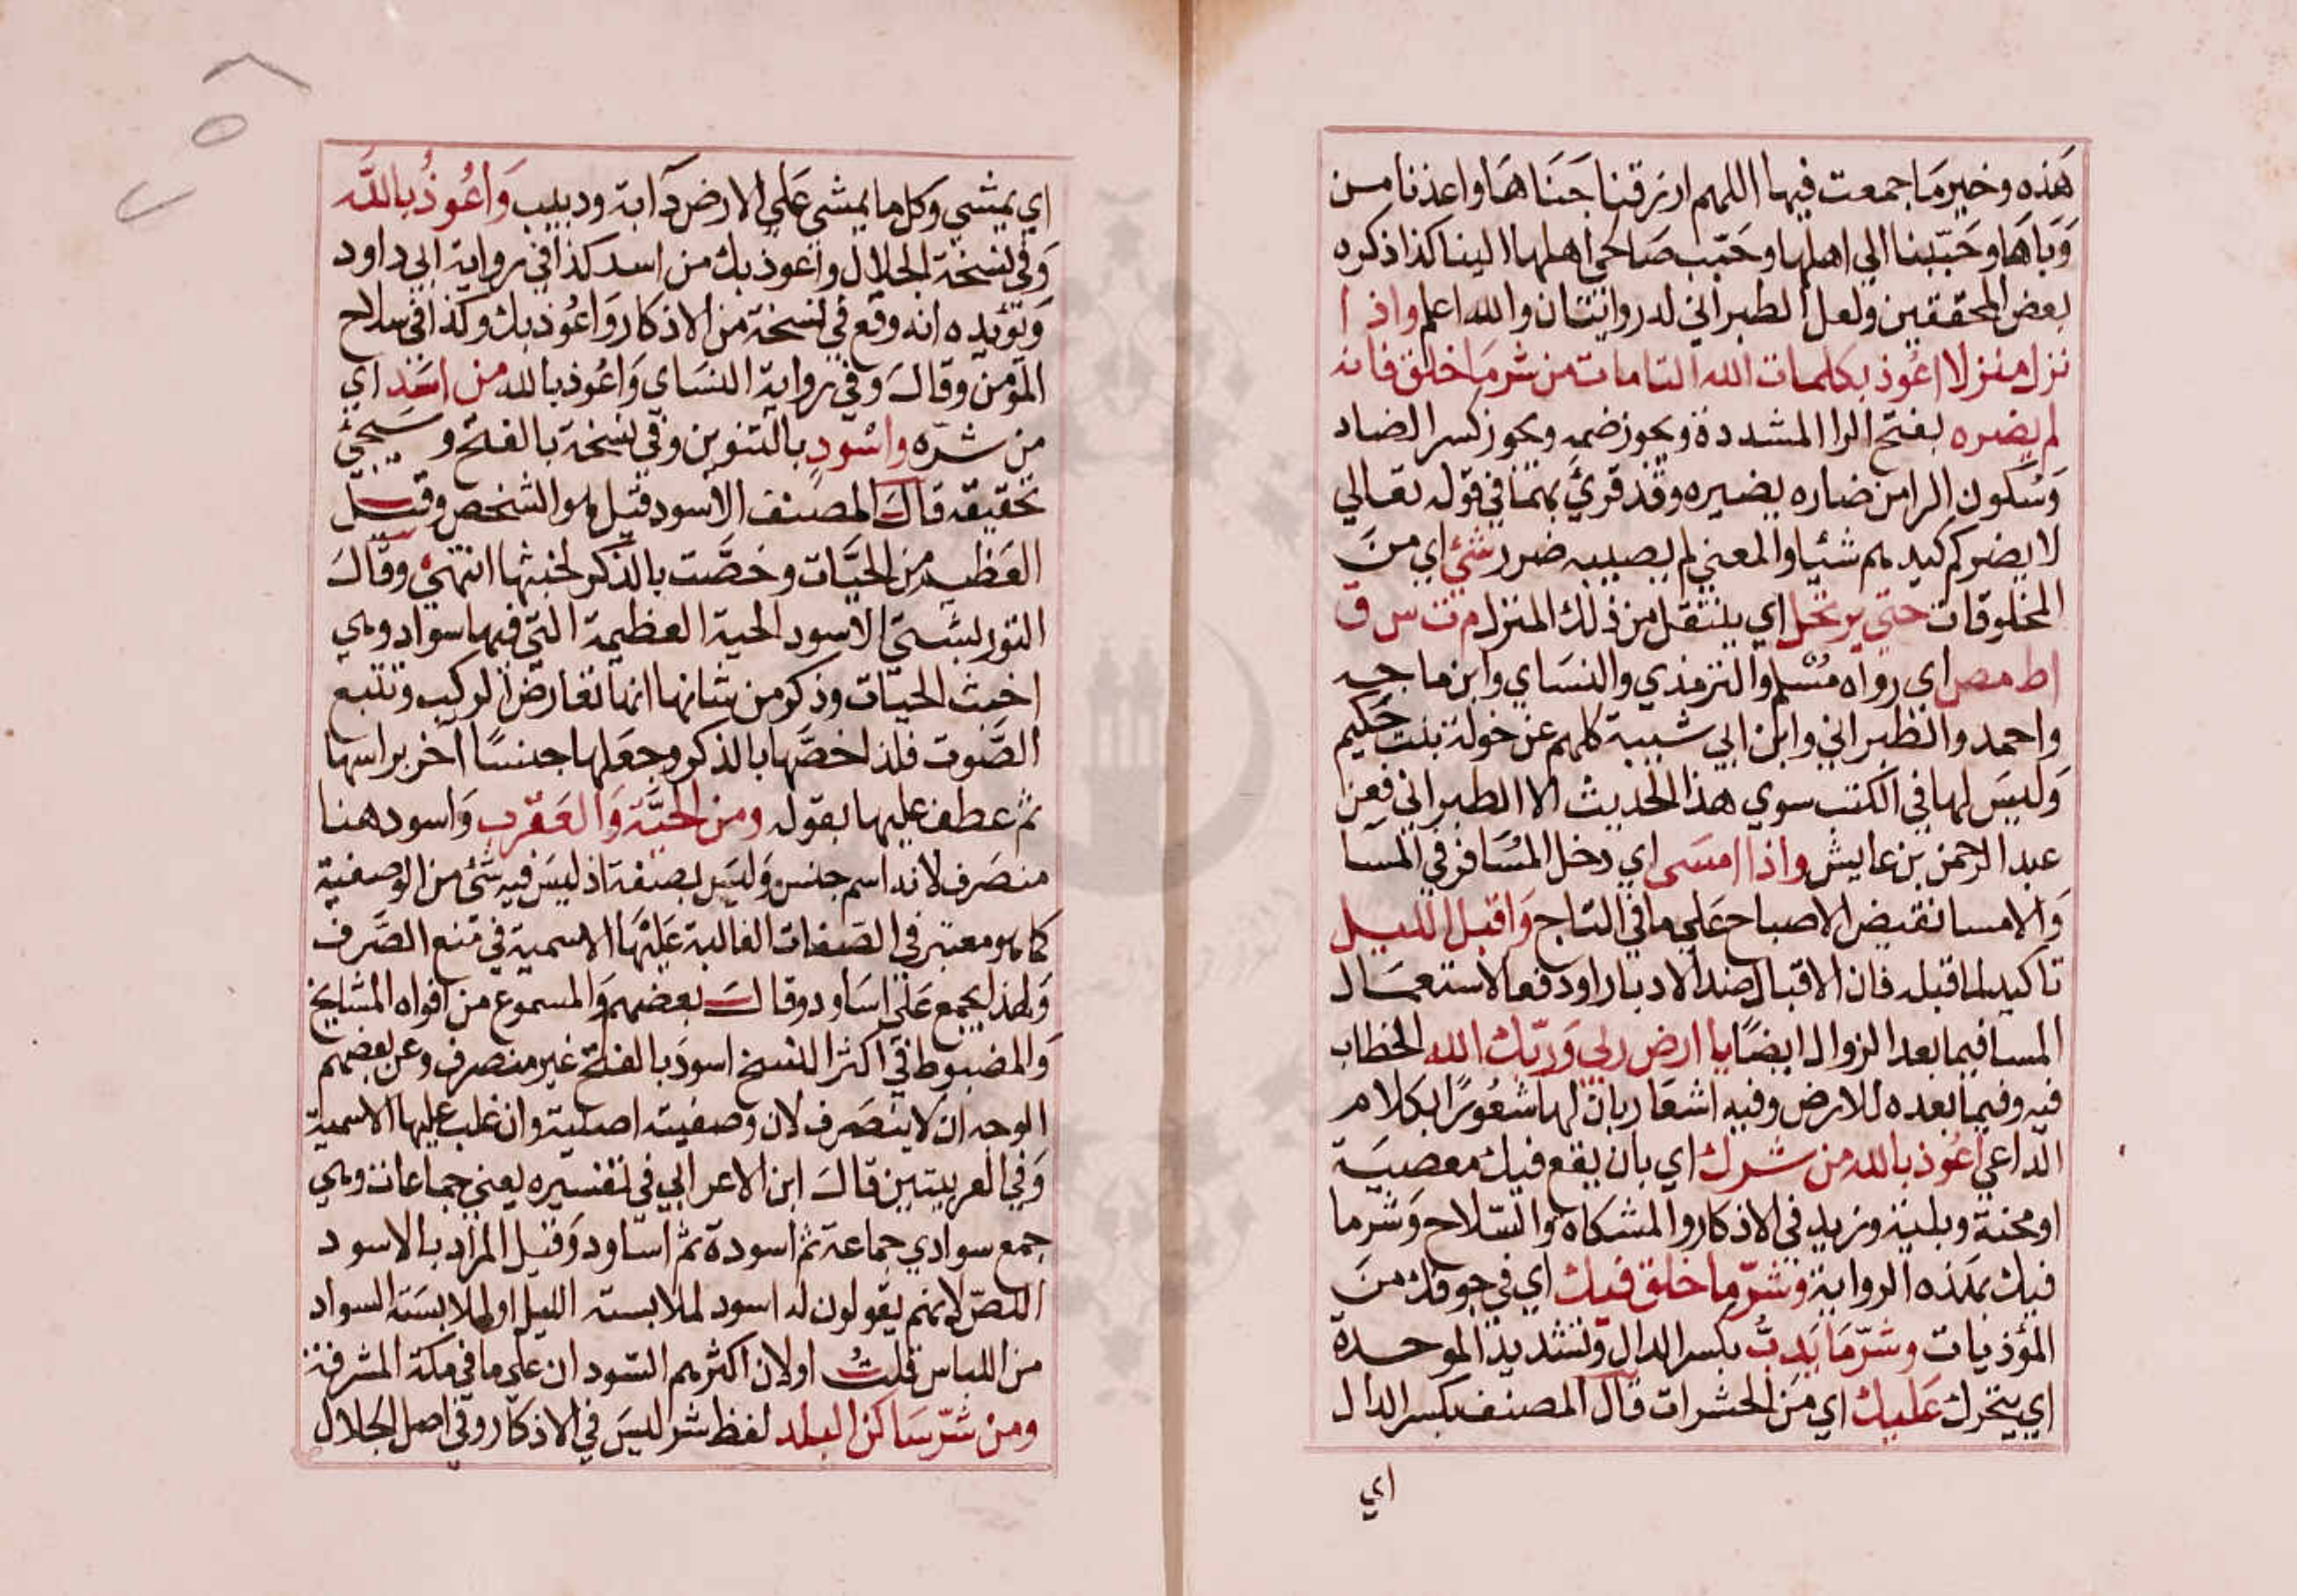 هذه وخير ما جمعت فيها اللهم ارزقنا جناها واعذنا من
وباها وحببنا الي اهلها وحبب صالحي اهلها الينا كذا ذكره
بعض المحققين ولعل الطبراني له روايتان والله اعلم واذا
نزل منزلا اعوذ بكلمات الله التامات من شر ما خلق فانه
لم يضره بفتح الرا المشددة ويجوز ضمه ويجوز كسر الضاد
وسكون الرا من ضاره يضيره وقد قرئ بهما في قوله تعالي
لا يضركم كيدهم شيئا والمعني لم يصيبه ضرر شئ اي من
المخلوقات حتي يرتحل اي ينتقل من ذلك المنزل م ت س ق
اط مص اي رواه مسلم والترمذي والنساي وابن ماجه
واحمد والطبراني وابن ابي شيبة كلهم عن خولة بنت حكيم
وليس لها في الكتب سوي هذا الحديث الا الطبراني فعن
عبد الرحمن بن عايش واذا امسي اي دخل المسافر في المسا
والامسا نقيض الاصباح علي ما في التاج واقبل الليل
تاكيد لما قبله فان الاقبال ضد الادبار او دفعا لاستعمال
المسا فيما بعد الزوال ايضا يا ارض ربي وربك الله الخطاب
فيه وفيما بعده للارض وفيه اشعار بان لها شعورا بكلام
الداعي اعوذ بالله من شرك اي بان يقع فيك معصية
او محنة وبلية وزيد في الاذكار والمشكاة والسلاح وشر ما
فيك بهذه الرواية وشر ما خلق فيك اي في جوفك من
المؤذيات وشر ما يدب بكسر الدال وتشديد الموحدة
اي يتحرك عليك اي من الحشرات قال المصنف بكسر الدال
اي
اي يمشي وكل ما يمشي علي الارض دآبة ودبيب واعوذ بالله
وفي نسخة الجلال واعوذ بك من اسد كذا في رواية ابي داود
ويؤيده انه وقع في نسخة من الاذكار واعوذ بك وكذا في سلاح
المؤمن وقال وفي رواية النساي واعوذ بالله من اسد اي
من شره واسود بالتنوين وفي نسخة بالفتح وسيجئ
تحقيقه قال المصنف الاسود قيل هو الشخص وقيل
العظيم من الحيات وخصت بالذكر لخبثها انتهي وقال
التوربشتي الاسود الحية العظيمة التي فيها سواد وهي
اخبث الحيات وذكر من شانها انها تعارض الركب وتتبع
الصوت فلذا خصها بالذكر وجعلها جنسا آخر براسها
ثم عطف عليها بقوله ومن الحية والعقرب واسود هنا
منصرف لانه اسم جنس وليس بصفة اذ ليس فيه شئ من الوصفية
كما هو معتبر في الصفات الغالبة عليها الاسمية في منع الصرف
ولهذا يجمع علي اساود وقال بعضهم والمسموع من افواه المشايخ
والمضبوط في اكثر النسخ اسود بالفتح غير منصرف وعن بعضهم
الوجه ان لا ينصرف لان وصفيته اصلية وان غلب عليها الاسمية
وفي الغريبين قال ابن الاعرابي في تفسيره يعني جماعات وهي
جمع سواد اي جماعة ثم اسودة ثم اساود وقيل المراد بالاسود
اللص لانهم يقولون له اسود لملابسته الليل او لملابسته السواد
من اللباس قلت او لان اكثرهم السودان علي ما في مكة المشرفة
ومن شر ساكن البلد لفظ شر ليس في الاذكار وفي اصل الجلال